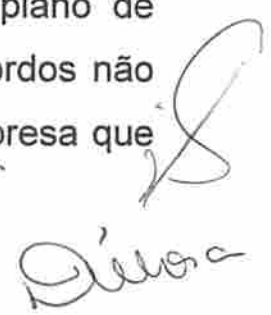 plano de
ordos não
presa que